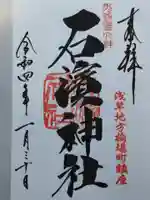 奉拝
浅草地方橋場町鎮座
石濱神社
令和四年
一月三十日